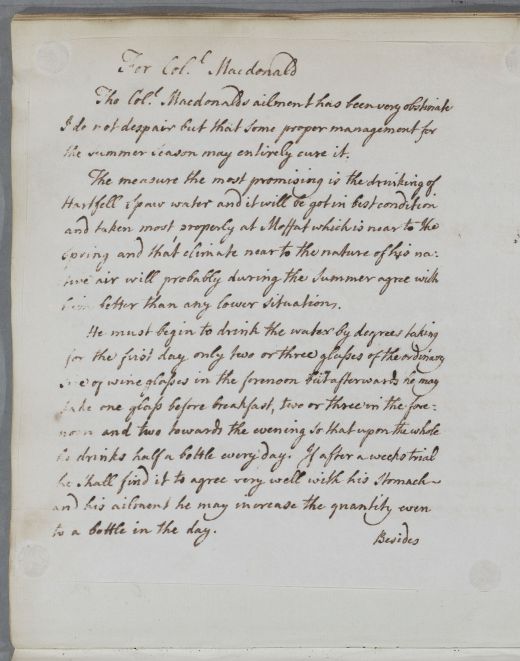 For Col.l Macdonald
Tho Col.l Macdonalds ailment has been very obstinate
I do not despair but that some proper management for
the summer season may entirely cure it.
The measure the most promising is the drinking of
Hartfell spaw water and it will be got in best condition
and taken most properly at Moffat which is near to the
Spring and that climate near to the nature of his na:
tive air will probably during the summer agree with
him better than any lower situation.
He must begin to drink the water by degrees taking
for the first day only two or three glasses of the ordinary
size of wine glasses in the forenoon but afterwards he may
take one glass before breakfast, two or three in the fore:
noon and two towards the evening so that upon the whole
he drinks half a bottle every day. If after a weeks trial
he shall find it to agree very well with his Stomach
and his ailment he may increase the quantity even
to a bottle in the day.
Besides